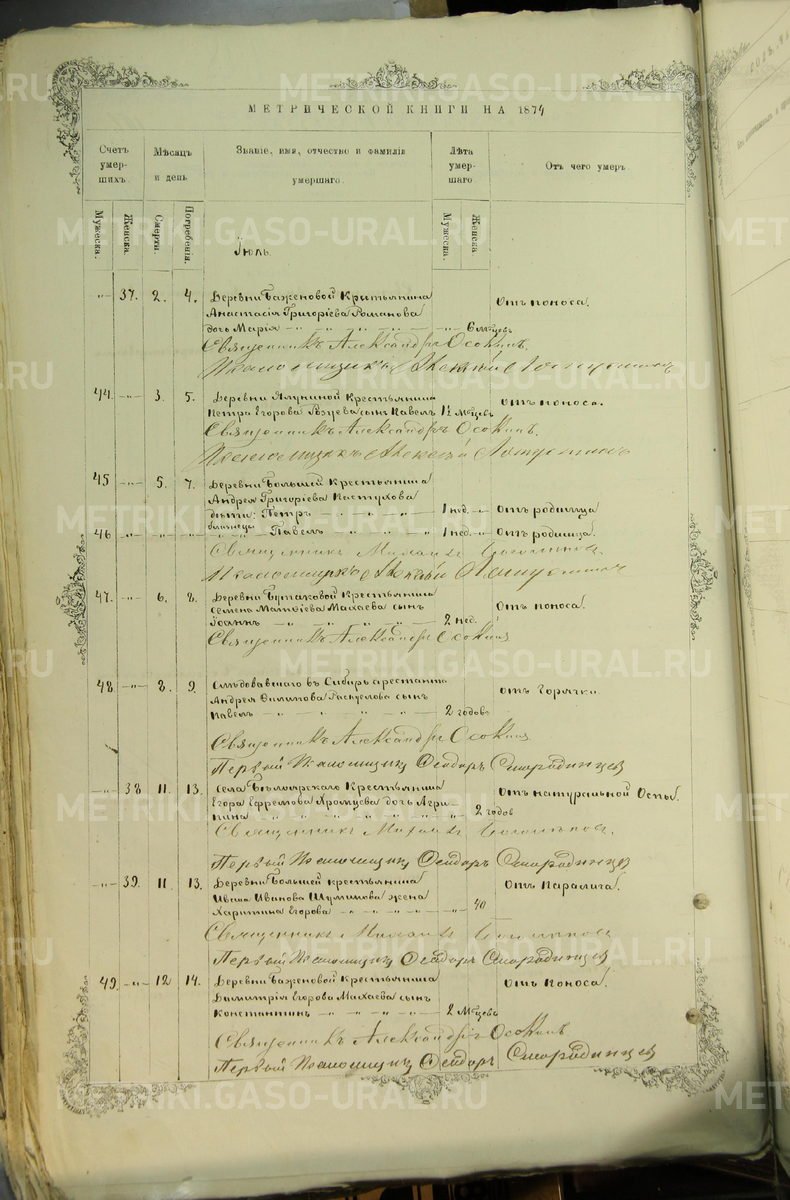 МЕТРИЧЕСКОЙ КНИГИ НА 1874
Счетъ умершихъ.
Мѣсяцъ и день
Званіе, имя, отчество и фамилія умершаго.
Лѣта умершаго
Отъ чего умеръ
Мужеска.
Женска.
Смерти.
Погребенія.
Мужеска.
Женска.
Іюль.
-„- 37. 2. 4. Деревни Баженовой Крестьянина
Анастасія Григоріева Романова
дочь Марія 6 мѣцевъ Отъ поноса.
Священникъ Александръ Осокинъ.
Псаломщикъ
44. -„- 3. 5. Деревни Ялуниной Крестьянина
Петра Егорова сынъ Павелъ 1½ Мѣцевъ Отъ поноса.
Священникъ Александръ Осокинъ.
Псаломщикъ
45 -„- 5. 7. Деревни Большей Крестьянина
Андрея Григоріева Пастухова
дѣти: Петръ 1 нед. Отъ родимца
близнецы
46 Павелъ 1 нед. Отъ родимца.
Священникъ Михаилъ
Псаломщикъ
47. -„- 6. 8. Деревни Бутаковой Крестьянина
Семена Матвіева Махаева сынъ
Іоаннъ 2 нед. Отъ поноса.
Священникъ Александръ Осокинъ
48. -„- 8. 9. Слѣдовавшаго въ Сибирь арестанта
Андрея Филипова сынъ
Павелъ 2 годовъ Отъ Горячки.
Священникъ Александръ Осокинъ
Первый Псаломщикъ Ѳеодоръ Смородинцев
-„- 38 11. 13. Села Бѣлоярскаго Крестьянина
Егора Ефремова Яромцева дочь Агри-
пина 2 годов Отъ натуральной Оспы.
Священникъ Михаилъ
Первый Псаломщикъ Ѳеодоръ Смородинцев
-„- 39. 11 13. Деревни Большей крестьянина
Ивана Иванова Шумилова жена
Харитина Егорова 40 Отъ Паралича.
Священникъ Михаилъ
Первый Псаломщикъ Ѳеодоръ Смородинцев
49. -„- 12 14. Деревни Баженовой Крестьянина
Димитрія Егорова Махаева сынъ
Константинъ 2 Мѣцевъ Отъ Поноса.
Священникъ Александръ Осокинъ
Первый Псаломщикъ Ѳеодоръ Смородинцев
METRIKI.GASO-URAL.RU